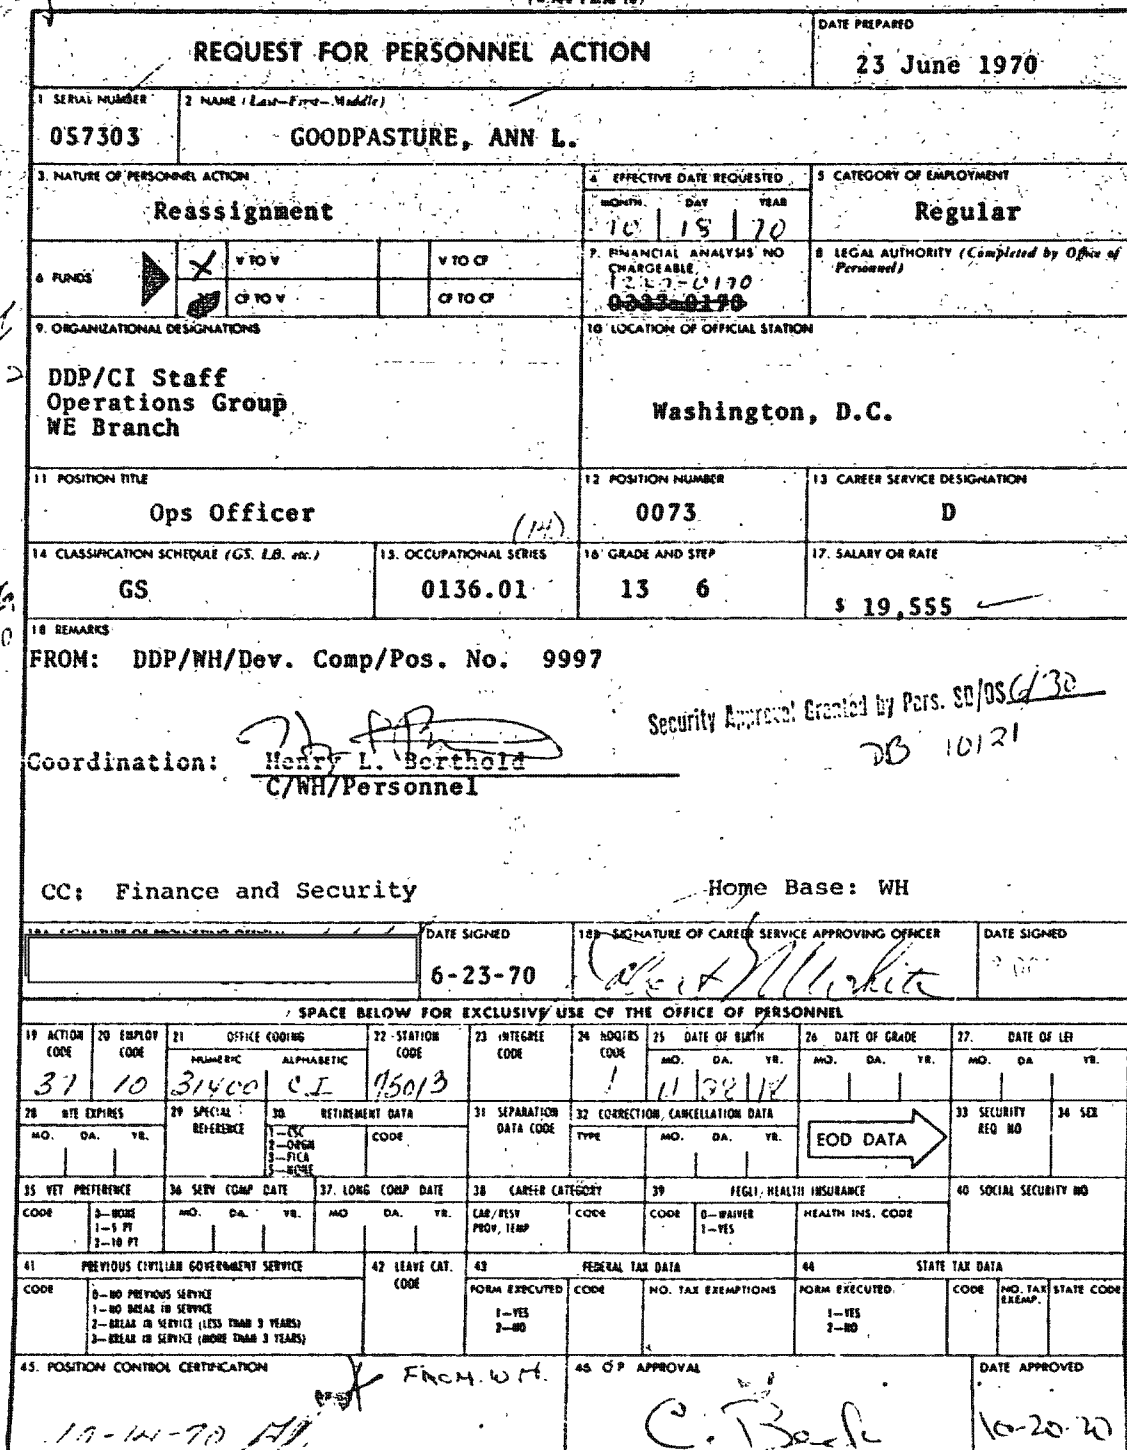 DATE PREPARED
REQUEST FOR PERSONNEL ACTION
23 June 1970
1 SERIAL NUMBER
2 NAME (Last—First—Middle)
057303
GOODPASTURE, ANN L.
3. NATURE OF PERSONNEL ACTION
4 EFFECTIVE DATE REQUESTED
5 CATEGORY OF EMPLOYMENT
MONTH DAY YEAR
Reassignment
10 18 70
Regular
6 FUNDS
X
V TO V
V TO CF
CF TO V
CF TO CF
7. FINANCIAL ANALYSIS NO CHARGEABLE
0170
8 LEGAL AUTHORITY (Completed by Office of Personnel)
9. ORGANIZATIONAL DESIGNATIONS
10 LOCATION OF OFFICIAL STATION
DDP/CI Staff
Operations Group
WE Branch
Washington, D.C.
11 POSITION TITLE
12 POSITION NUMBER
13 CAREER SERVICE DESIGNATION
Ops Officer
(14)
0073
D
14 CLASSIFICATION SCHEDULE (GS, LB, etc.)
15. OCCUPATIONAL SERIES
16 GRADE AND STEP
17. SALARY OR RATE
GS
0136.01
13 6
$ 19,555
18 REMARKS
FROM: DDP/WH/Dev. Comp/Pos. No. 9997
Security Approval Granted by Pers. SD/OS 6/30
DB 10121
Coordination: Henry L. Berthold
C/WH/Personnel
CC: Finance and Security
Home Base: WH
DATE SIGNED
18B SIGNATURE OF CAREER SERVICE APPROVING OFFICER
DATE SIGNED
6-23-70
SPACE BELOW FOR EXCLUSIVE USE OF THE OFFICE OF PERSONNEL
19 ACTION CODE
20 EMPLOY CODE
21 OFFICE CODING
NUMERIC ALPHABETIC
22 STATION CODE
23 INTEGREE CODE
24 HDQTRS CODE
25 DATE OF BIRTH
MO. DA. YR.
26 DATE OF GRADE
MO. DA. YR.
27. DATE OF LEI
MO. DA YR.
37
10
31400 C.I.
75013
1
11 28 18
28 NTE EXPIRES
MO. DA. YR.
29 SPECIAL REFERENCE
30 RETIREMENT DATA
1—CSC
2—ORGN
3—FICA
5—NONE
CODE
31 SEPARATION DATA CODE
32 CORRECTION, CANCELLATION DATA
TYPE MO. DA. YR.
EOD DATA
33 SECURITY REQ NO
34 SEX
35 VET PREFERENCE
CODE
0—NONE
1—5 PT
2—10 PT
36 SERV COMP DATE
MO. DA. YR.
37. LONG COMP DATE
MO DA. YR.
38 CAREER CATEGORY
CAR/RESV
PROV, TEMP
CODE
39 FEGLI, HEALTH INSURANCE
CODE
0—WAIVER
1—YES
HEALTH INS. CODE
40 SOCIAL SECURITY NO
41 PREVIOUS CIVILIAN GOVERNMENT SERVICE
CODE
0—NO PREVIOUS SERVICE
1—NO BREAK IN SERVICE
2—BREAK IN SERVICE (LESS THAN 3 YEARS)
3—BREAK IN SERVICE (MORE THAN 3 YEARS)
42 LEAVE CAT. CODE
43 FEDERAL TAX DATA
FORM EXECUTED
1—YES
2—NO
CODE
NO. TAX EXEMPTIONS
44 STATE TAX DATA
FORM EXECUTED
1—YES
2—NO
CODE
NO. TAX EXEMP.
STATE CODE
45. POSITION CONTROL CERTIFICATION
FROM. WH.
10-14-70
46 O P APPROVAL
DATE APPROVED
10-20-70